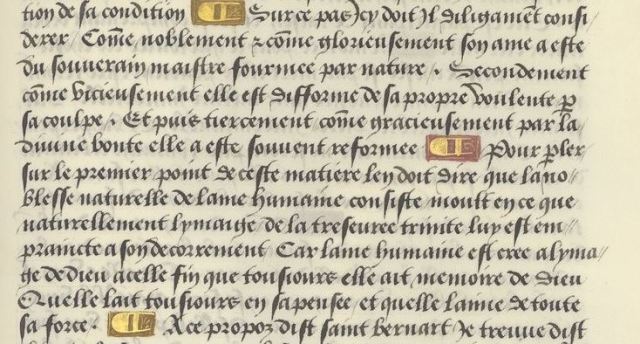 tion de sa condition Sur ce pas Icy doit Il diligament consi/
derer / Come noblement & come glorieusement son ame a este
du souuerain maistre fourmee par nature . Secondement
come vicieusement elle est difforme de sa propre voulente p
sa coulpe . Et puis tiercement come gracieusement par la/
diuine bonte elle a este souuent reformee Pour pler
sur le premier point de ceste matiere len doit dire que la no/
blesse naturelle de lame humaine consiste moult en ce que
naturellement lymaige de la treseuree trinite luy est em/
prainte a son decorrement / Car lame humaine est cree a lyma/
ge de dieu a celle fin que tousiours elle ait memoire de dieu
Quelle lait tousiours en sa pensee et quelle laime de toute
sa force . A ce propoz dist saint bernart / Je treuue dist